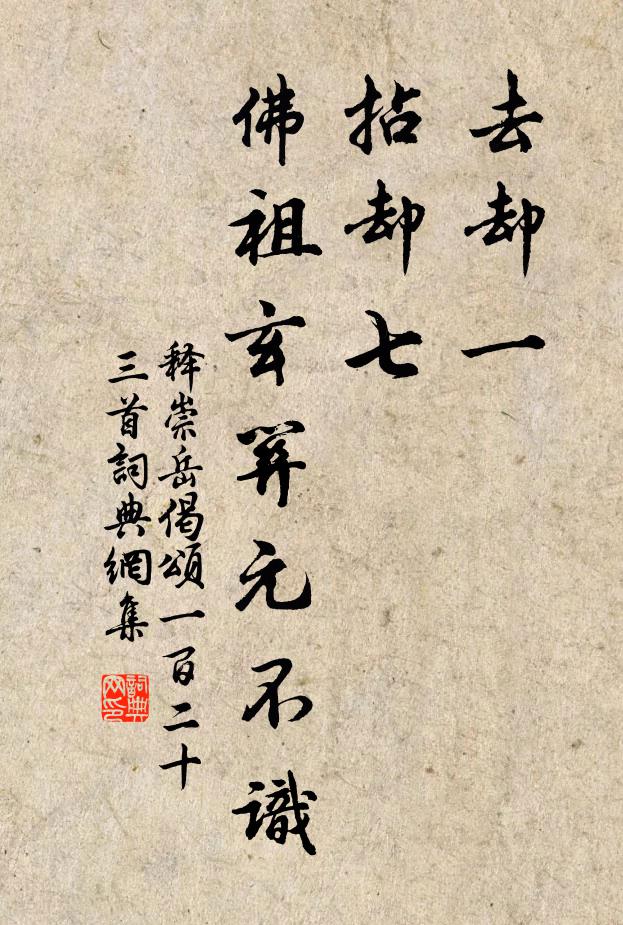 去却一
拈却七
佛祖玄筭元不識
释崇岳偈頌一百二十
三首詞典網集
詞典
网印